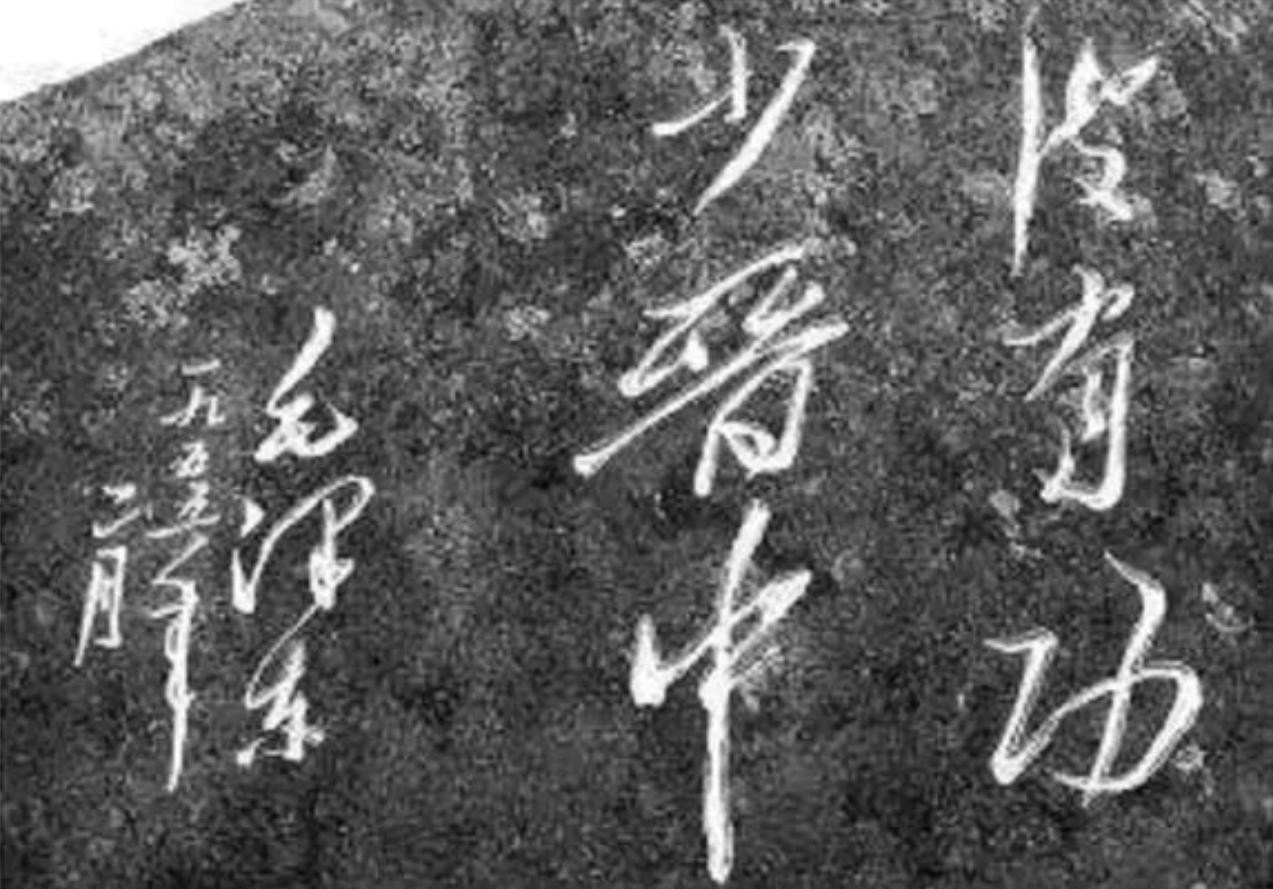 有功
晋中
毛泽东
一九五五年
二月